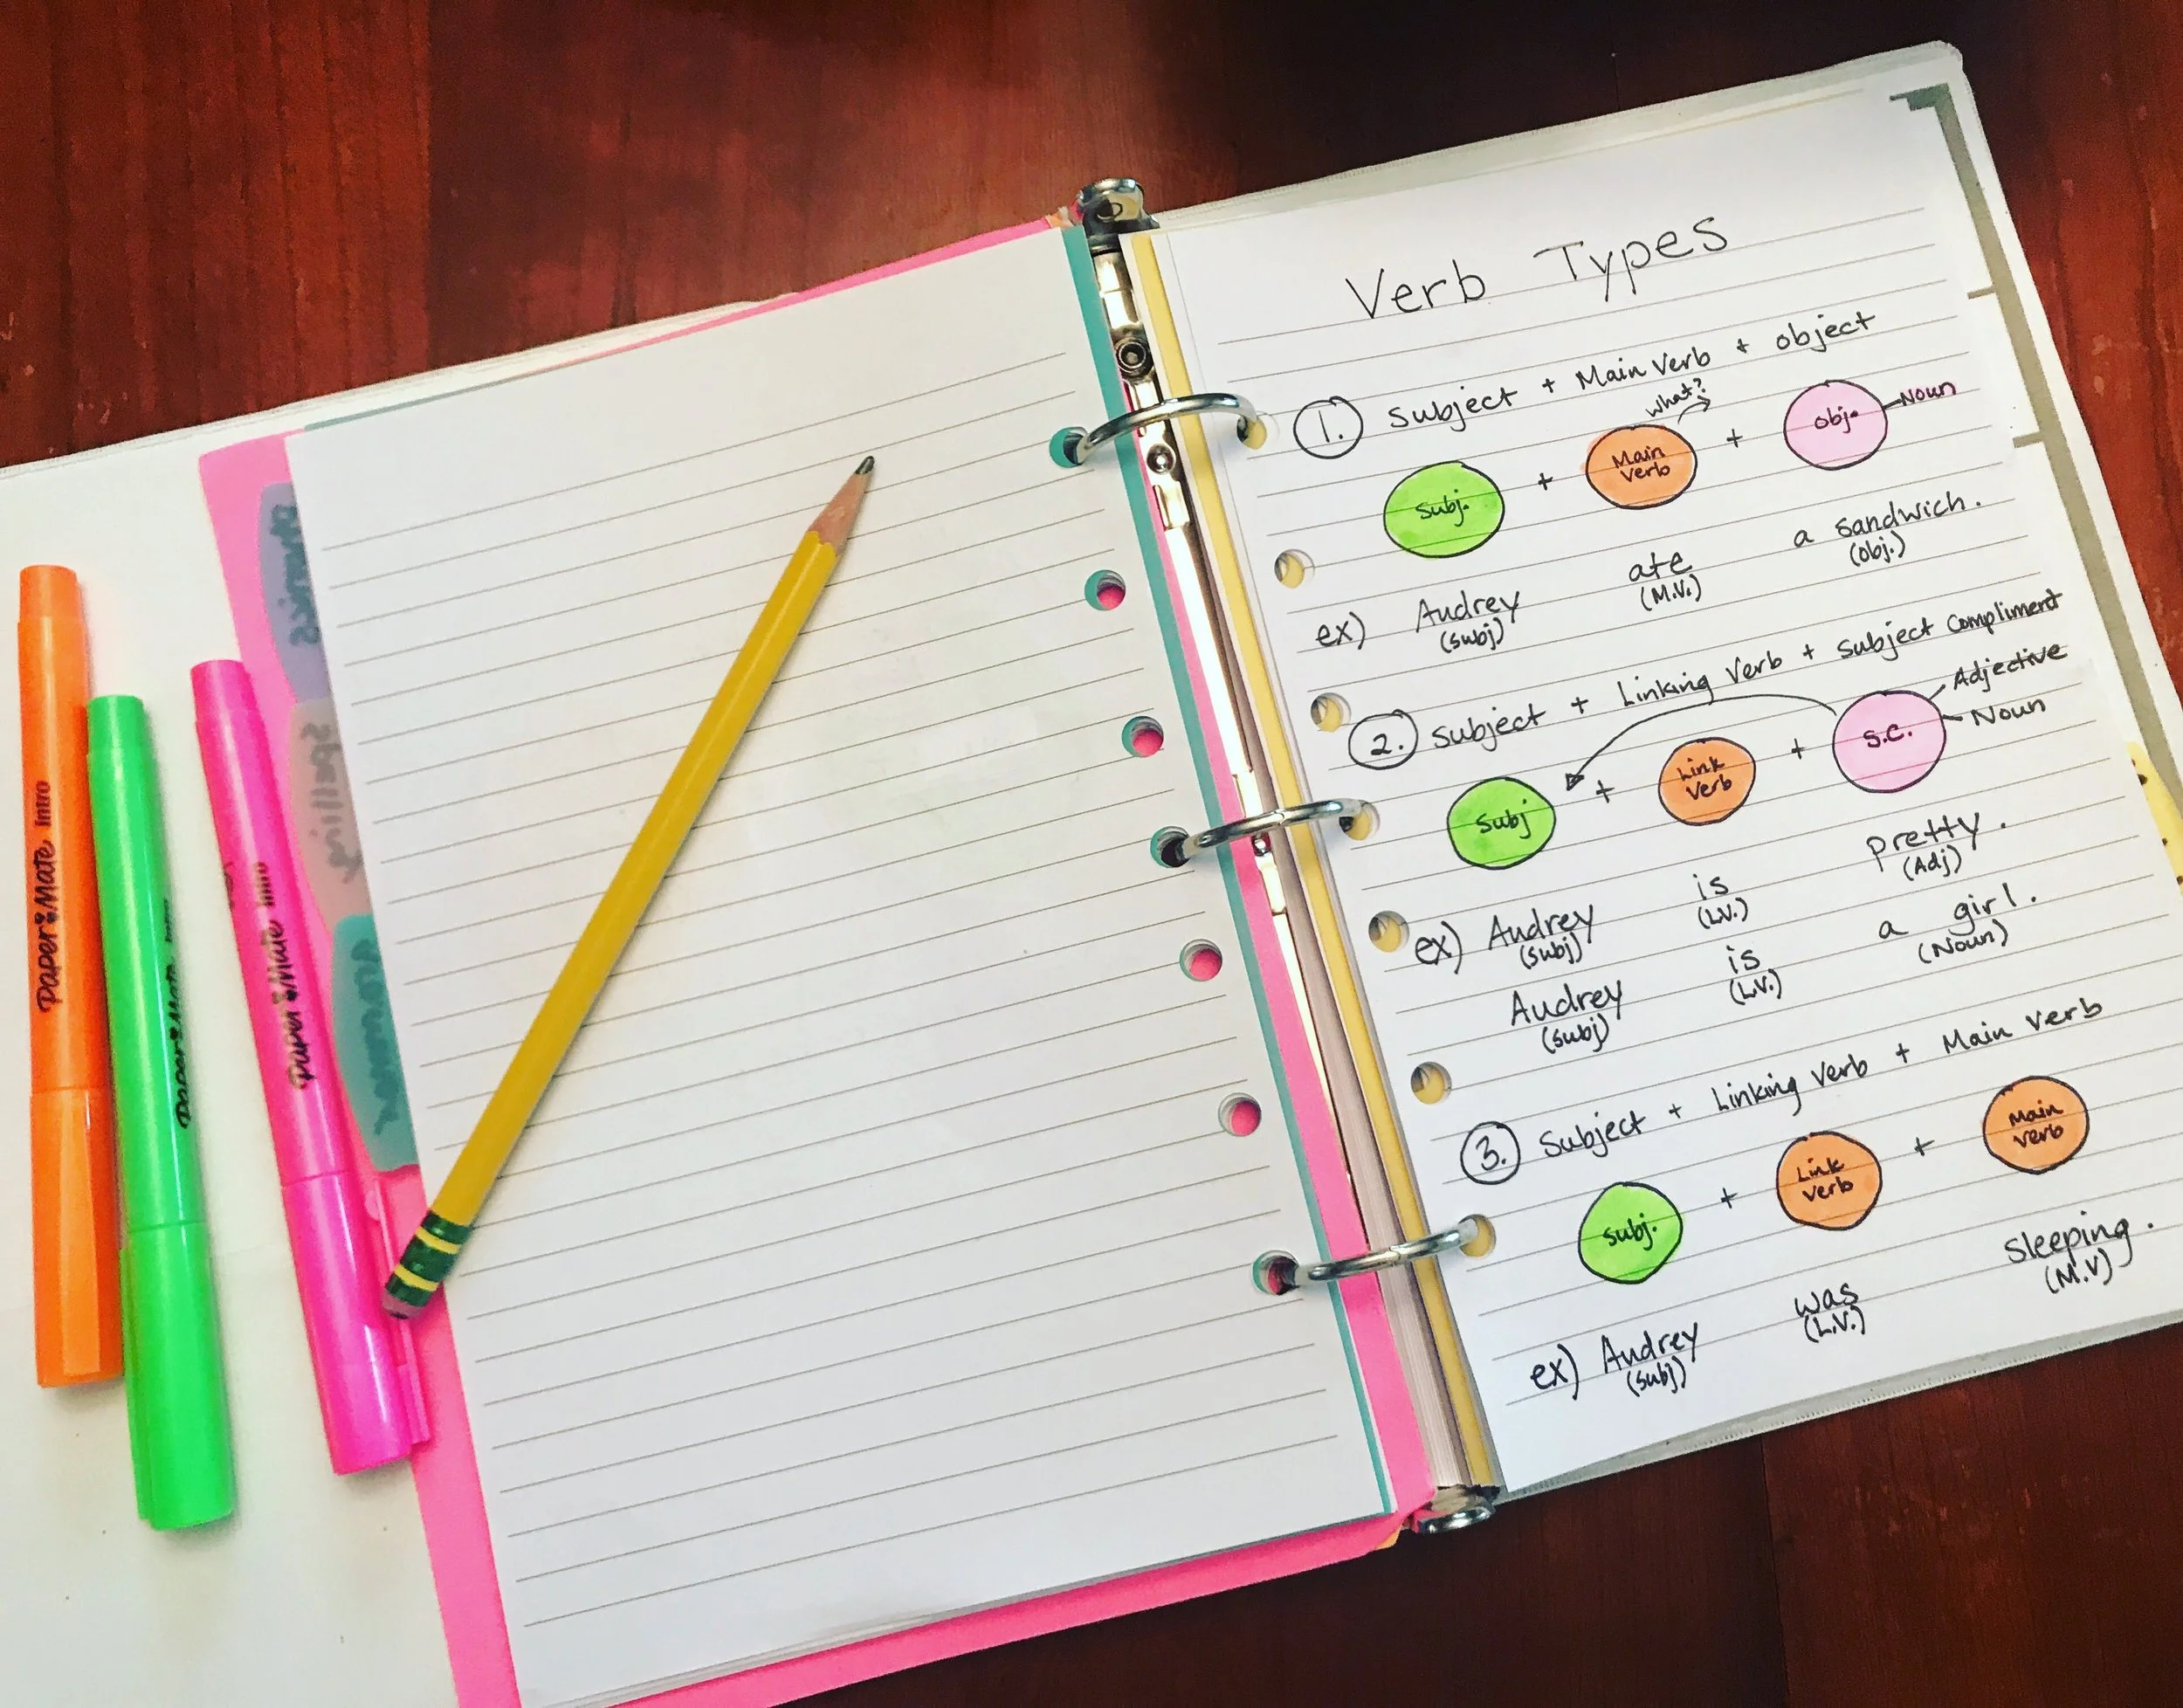 Paper Mate Intro
Paper Mate Intro
Paper Mate Intro
phonics
spelling
Grammar
Verb Types
1. Subject + Main Verb + object
what?
Subj. + Main Verb + Obj. Noun
ex) Audrey ate a sandwich.
(subj) (M.V.) (obj.)
2. Subject + Linking Verb + Subject Compliment
Adjective
Subj + Link Verb + S.C. Noun
ex) Audrey is pretty.
(subj) (L.V.) (Adj)
Audrey is a girl.
(subj) (L.V.) (Noun)
3. Subject + Linking Verb + Main Verb
Subj. + Link Verb + Main Verb
ex) Audrey was sleeping.
(subj) (L.V.) (M.V)